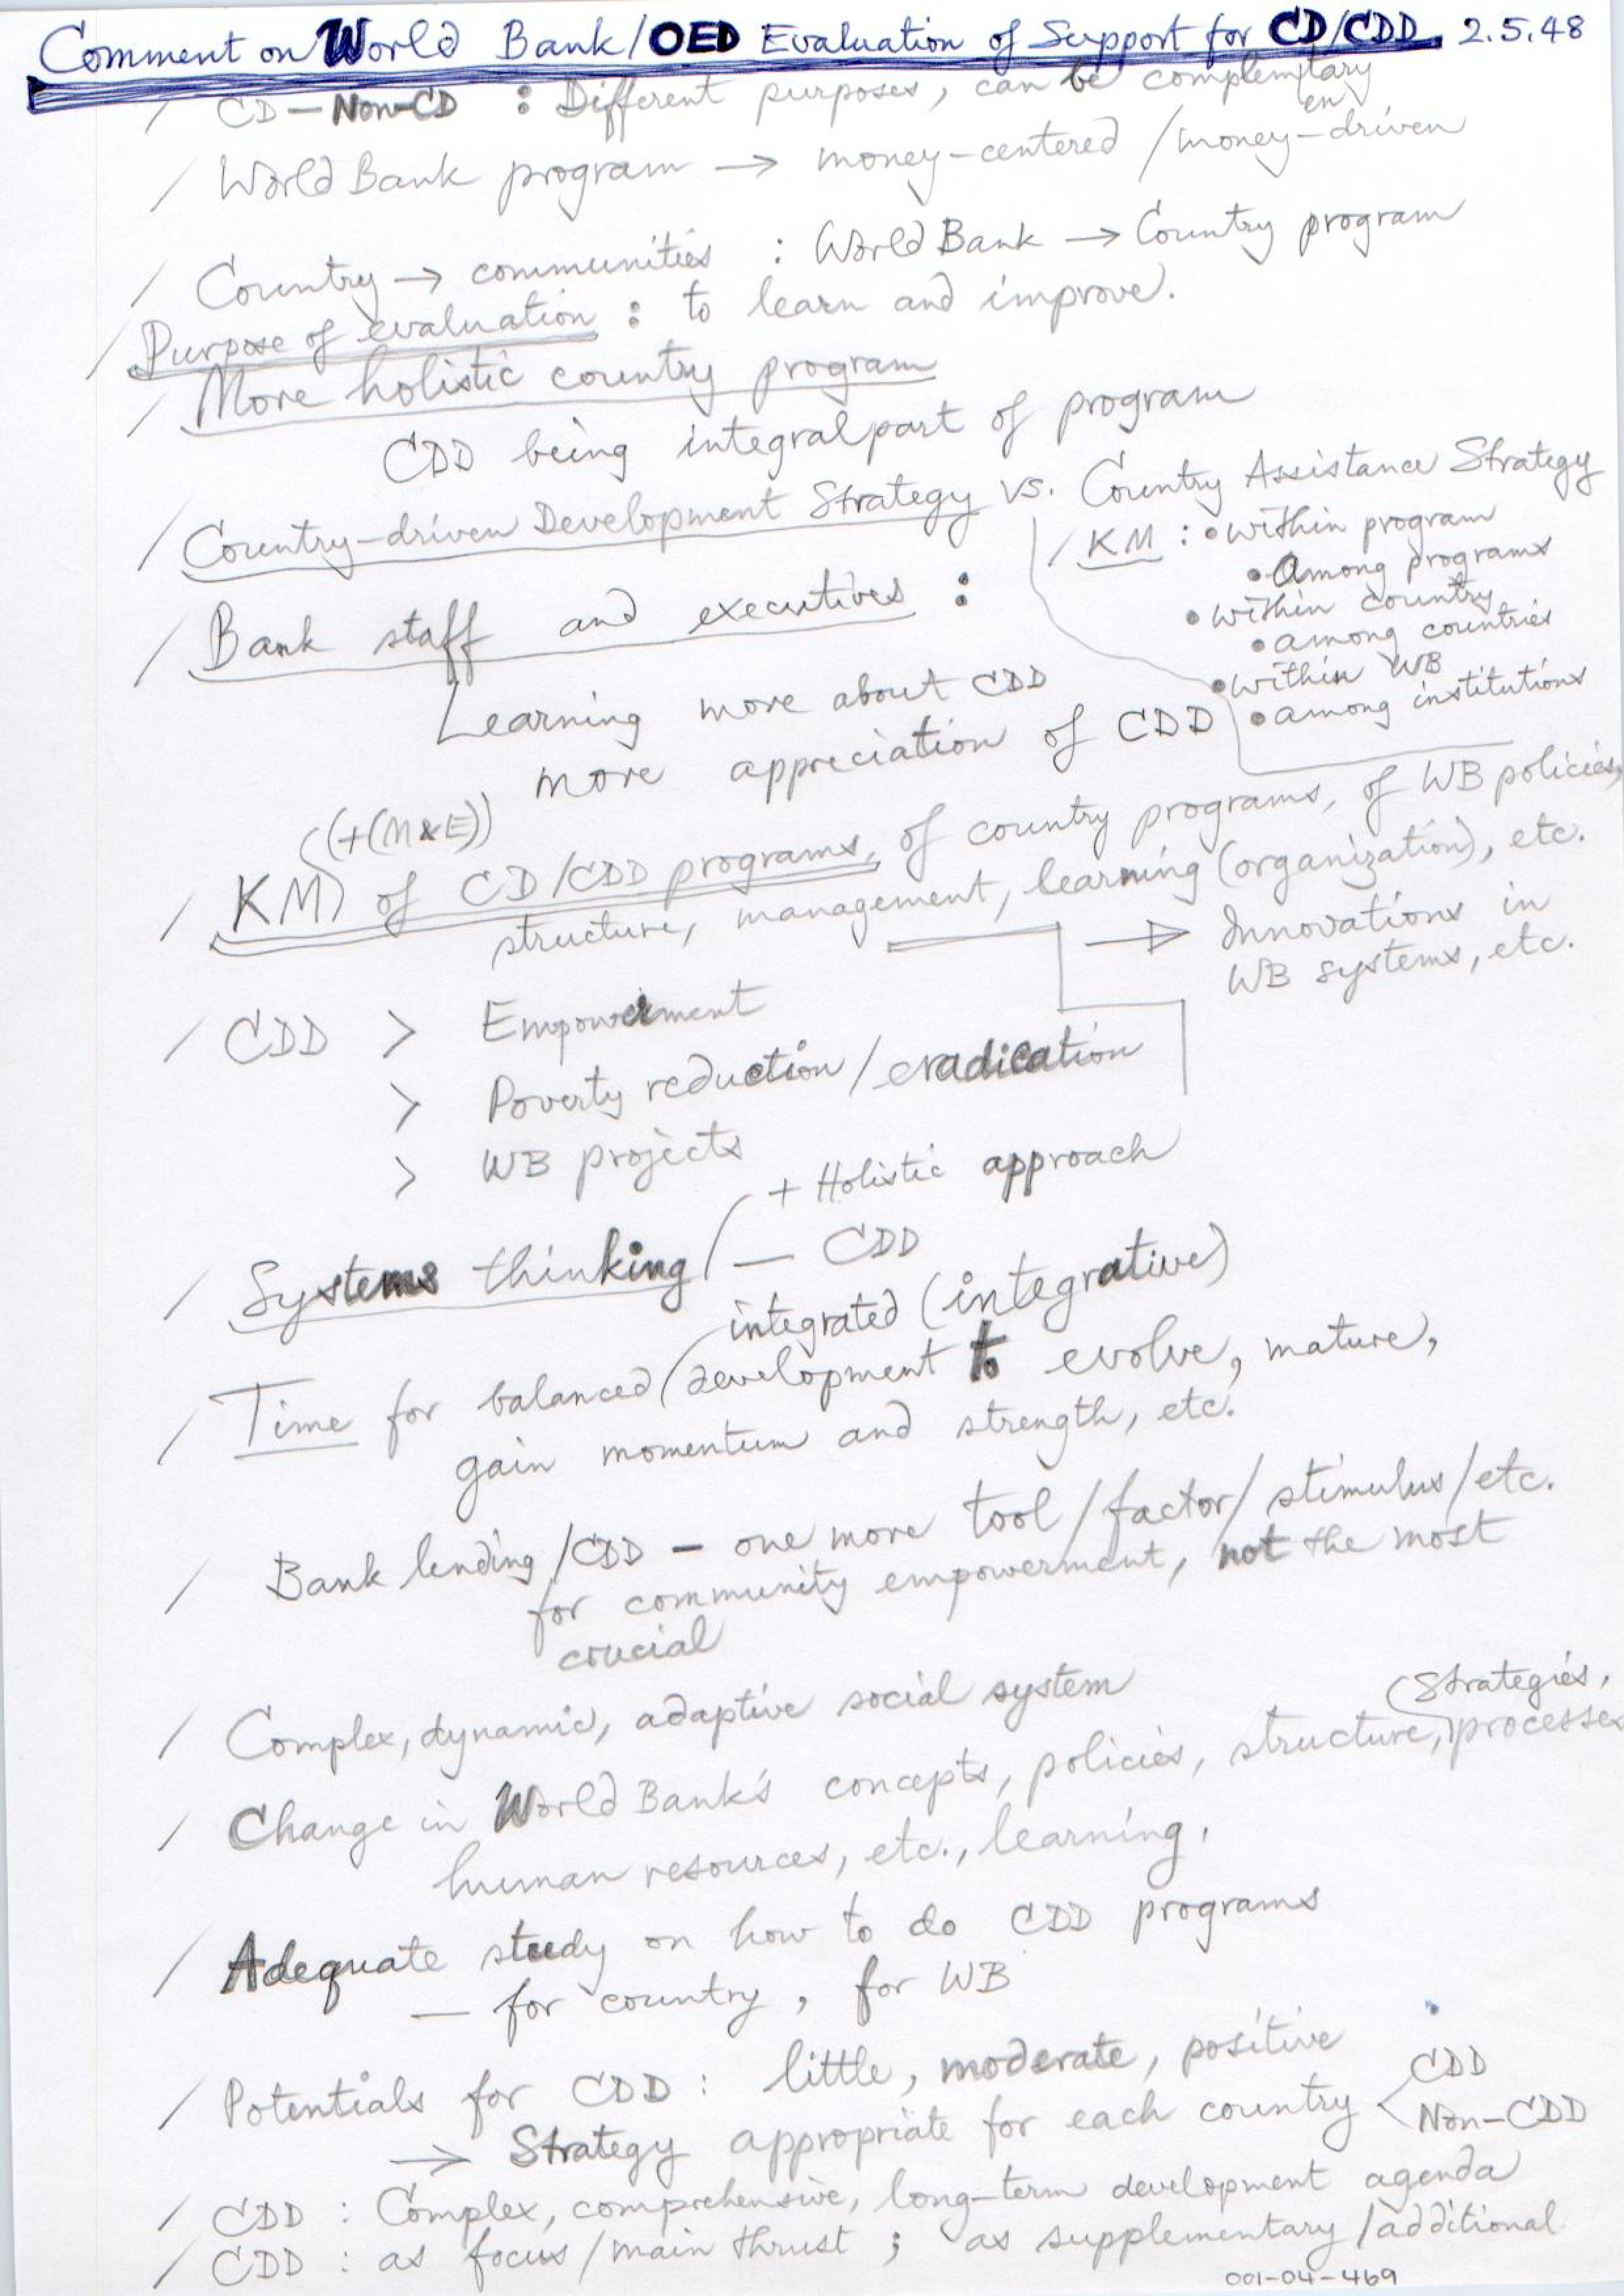 Comment on World Bank/OED Evaluation of Support for CD/CDD 2.5.48
/ CD – Non-CD : Different purposes, can be complemtary
en
/ World Bank program → money-centered / money-driven
/ Country → communities : World Bank → Country program
/ Purpose of evaluation : to learn and improve.
/ More holistic country program
CDD being integral part of program
/ Country-driven Development Strategy vs. Country Assistance Strategy
/ KM : • within program
• Among programs
• within country
• among countries
• within WB
• among institutions
/ Bank staff and executives :
Learning more about CDD
more appreciation of CDD
(+(M&E))
/ KM of CD/CDD programs, of country programs, of WB policies,
structure, management, learning (organization), etc.
→ Innovations in
WB systems, etc.
/ CDD > Empowerment
> Poverty reduction / eradication
> WB projects
/ Systems thinking + Holistic approach
— CDD
integrated (integrative)
/ Time for balanced development to evolve, mature,
gain momentum and strength, etc.
/ Bank lending /CDD – one more tool / factor / stimulus / etc.
for community empowerment, not the most
crucial
/ Complex, dynamic, adaptive social system
(strategies,
/ Change in World Bank's concepts, policies, structure, processes
human resources, etc., learning.
/ Adequate study on how to do CDD programs
— for country, for WB
/ Potentials for CDD : little, moderate, positive
→ Strategy appropriate for each country < CDD
Non-CDD
/ CDD : Complex, comprehensive, long-term development agenda
/ CDD : as focus / main thrust ; as supplementary / additional
001-04-469